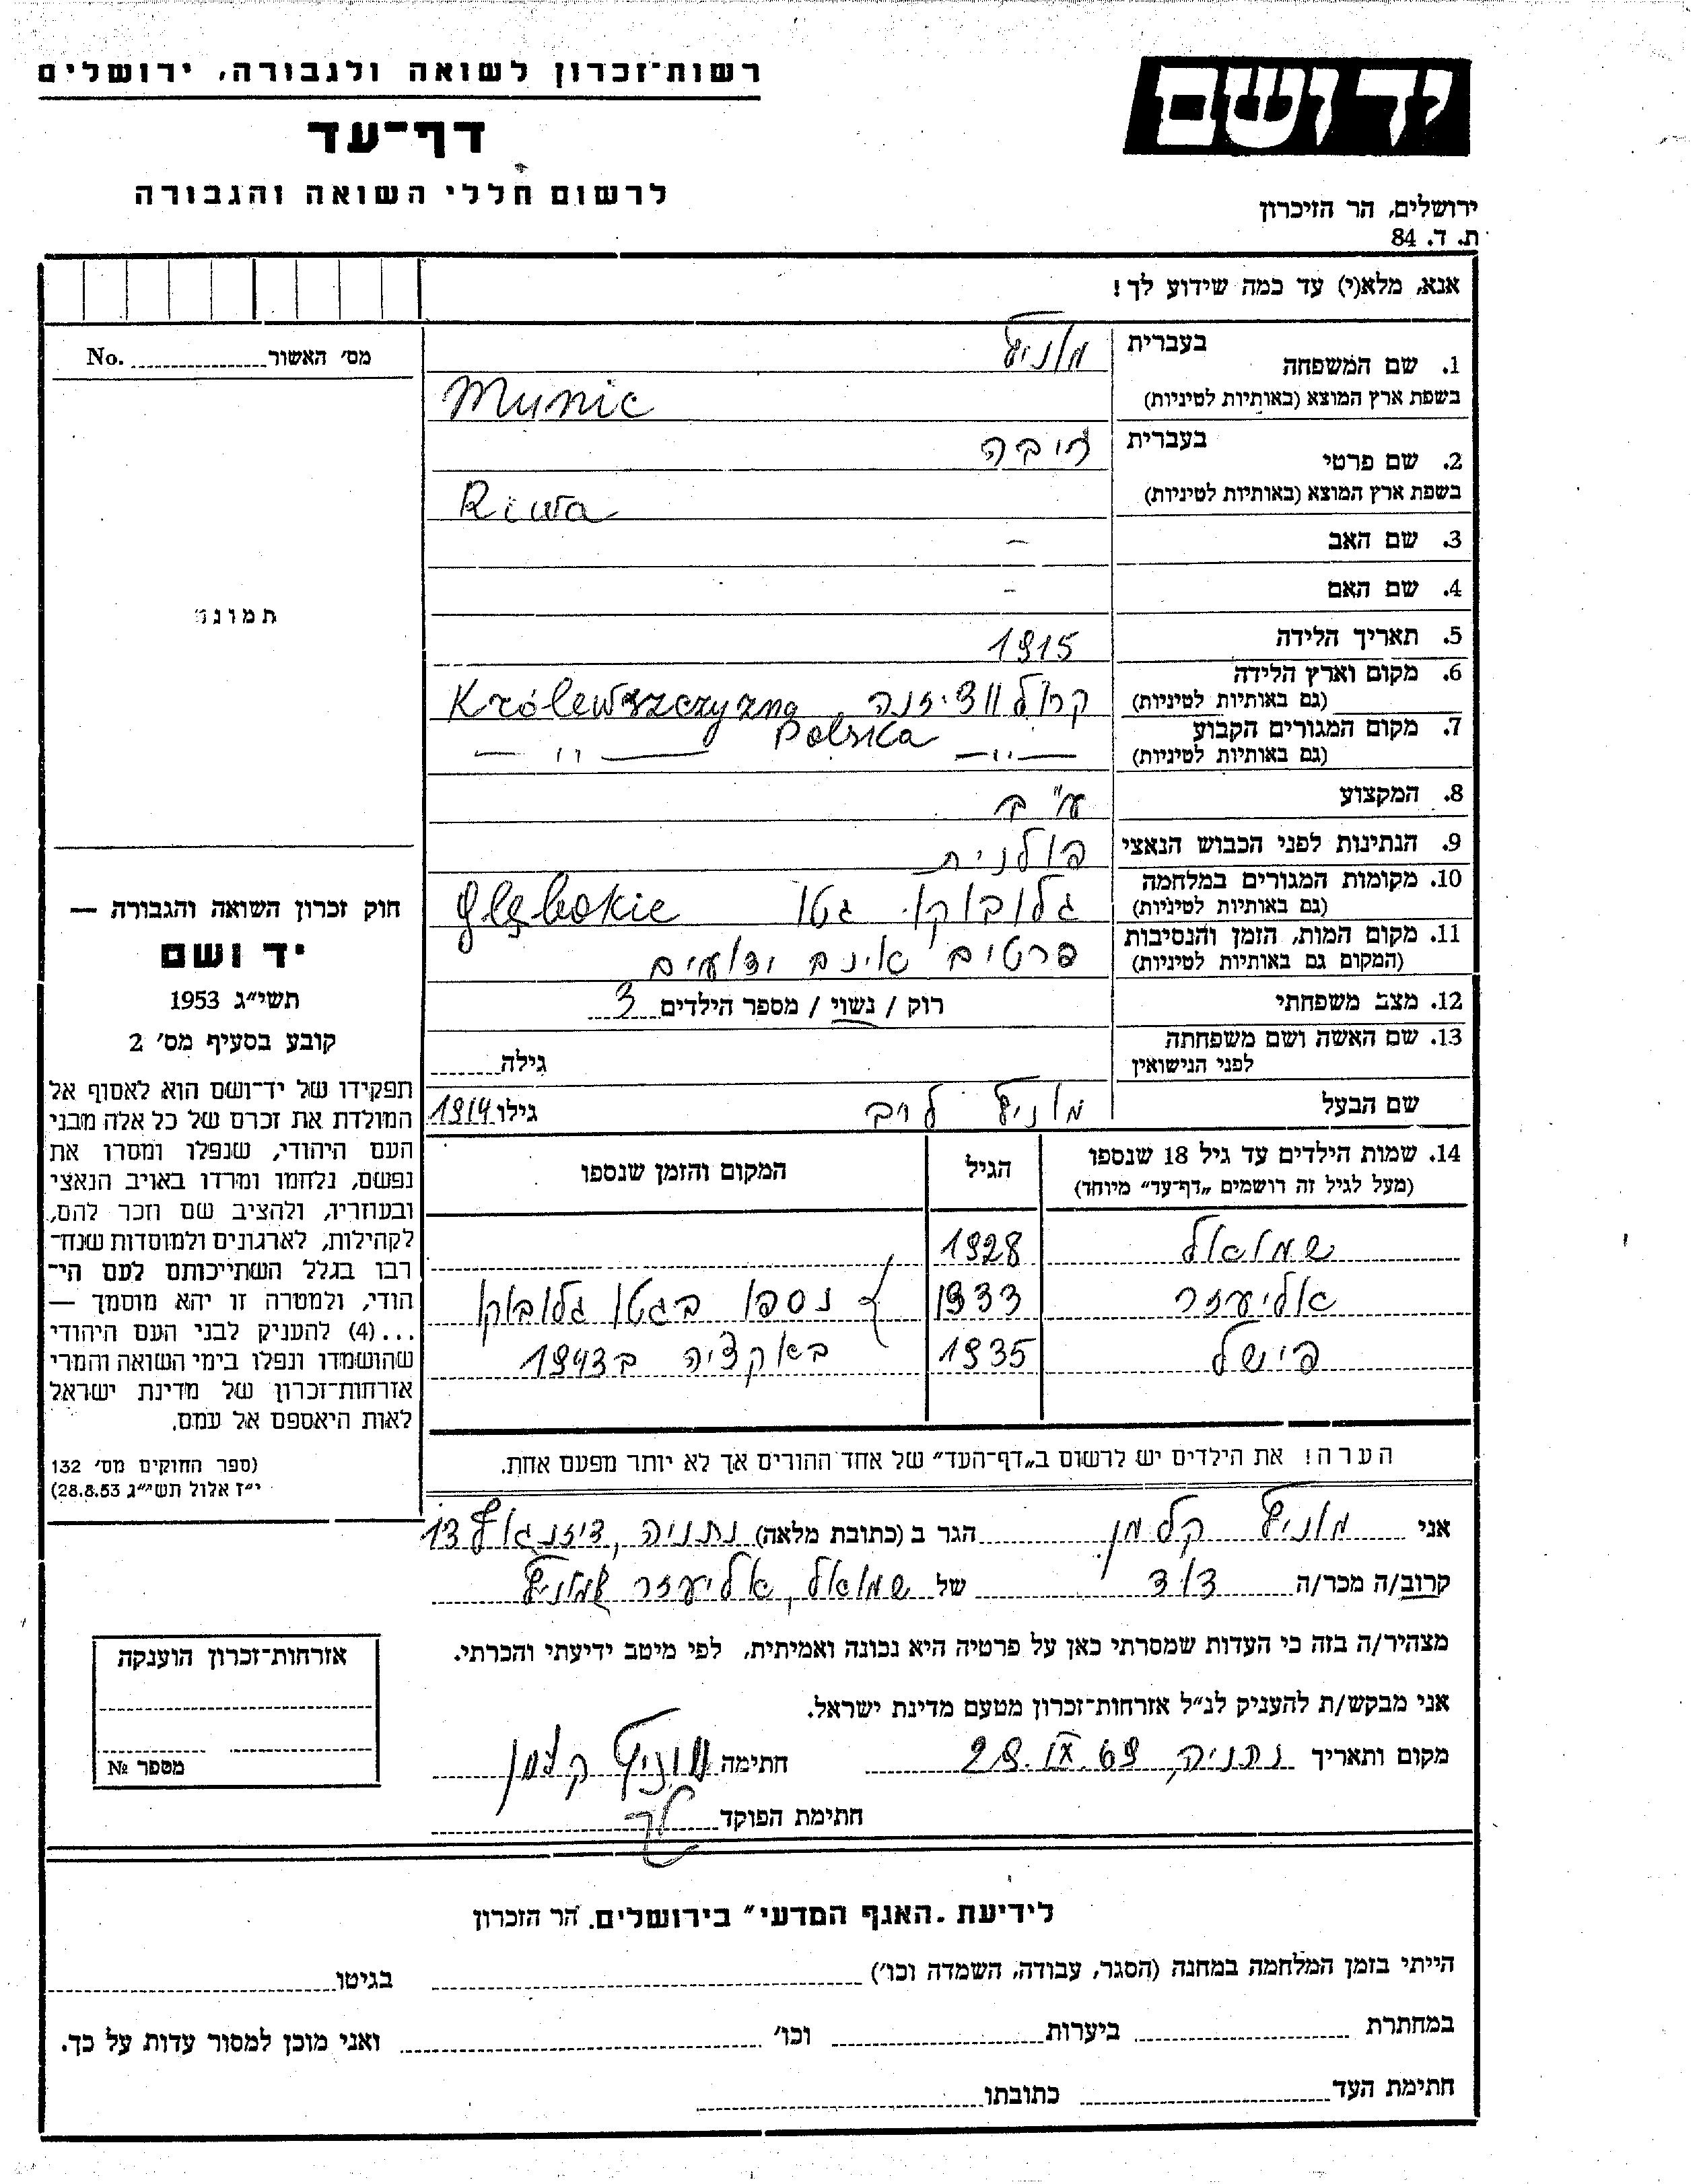 רשות־זכרון לשואה ולגבורה, ירושלים
דף־עד
לרשום חללי השואה והגבורה
יד ושם
ירושלים, הר הזיכרון
ת. ד. 84
אנא, מלא(י) עד כמה שידוע לך!
מס׳ האשור No.
תמונה
1. שם המשפחה
בעברית מוניץ
בשפת ארץ המוצא (באותיות לטיניות) Munic
2. שם פרטי
בעברית ריבה
בשפת ארץ המוצא (באותיות לטיניות) Riwa
3. שם האב –
4. שם האם –
5. תאריך הלידה 1915
6. מקום וארץ הלידה קרולווציזנה Królewszczyzna
(גם באותיות לטיניות) Polska
7. מקום המגורים הקבוע
(גם באותיות לטיניות) — ״ — — ״ —
8. המקצוע ע״ב
9. הנתינות לפני הכבוש הנאצי פולנית
10. מקומות המגורים במלחמה גלובוקי גטו Głębokie
(גם באותיות לטיניות)
11. מקום המות, הזמן והנסיבות פרטים אינם ידועים
(המקום גם באותיות לטיניות)
12. מצב משפחתי רוק / נשוי / מספר הילדים 3
13. שם האשה ושם משפחתה
לפני הנישואין גילה
שם הבעל מוניץ לייב גילו 1914
14. שמות הילדים עד גיל 18 שנספו
(מעל לגיל זה רושמים „דף־עד״ מיוחד)
הגיל
המקום והזמן שנספו
שמואל 1928
אליעזר 1933 נספו בגטו גלובוקי
פישל 1935 באקציה ב1943
הערה! את הילדים יש לרשום ב„דף־העד״ של אחד ההורים אך לא יותר מפעם אחת.
חוק זכרון השואה והגבורה —
יד ושם
תשי״ג 1953
קובע בסעיף מס׳ 2
תפקידו של יד־ושם הוא לאסוף אל
המולדת את זכרם של כל אלה מבני
העם היהודי, שנפלו ומסרו את
נפשם, נלחמו ומרדו באויב הנאצי
ובעוזריו, ולהציב שם וזכר להם,
לקהילות, לארגונים ולמוסדות שנח־
רבו בגלל השתייכותם לעם הי־
הודי, ולמטרה זו יהא מוסמך —
...(4) להעניק לבני העם היהודי
שהושמדו ונפלו בימי השואה והמרי
אזרחות־זכרון של מדינת ישראל
לאות היאספם אל עמם.
(ספר החוקים מס׳ 132
י״ז אלול תשי״ג 28.8.53)
אני מוניץ קלמן הגר ב (כתובת מלאה) נתניה, דיזנגוף 13
קרוב/ה מכר/ה דוד של שמואל, אליעזר מוניץ
מצהיר/ה בזה כי העדות שמסרתי כאן על פרטיה היא נכונה ואמיתית, לפי מיטב ידיעתי והכרתי.
אני מבקש/ת להעניק לנ״ל אזרחות־זכרון מטעם מדינת ישראל.
מקום ותאריך נתניה, 28.IX.69 חתימה מוניץ קלמן
חתימת הפוקד
אזרחות־זכרון הוענקה
מספר №
לידיעת „האגף המדעי״ בירושלים. הר הזכרון
הייתי בזמן המלחמה במחנה (הסגר, עבודה, השמדה וכו׳) בגיטו
במחתרת ביערות וכו׳ ואני מוכן למסור עדות על כך.
חתימת העד כתובתו